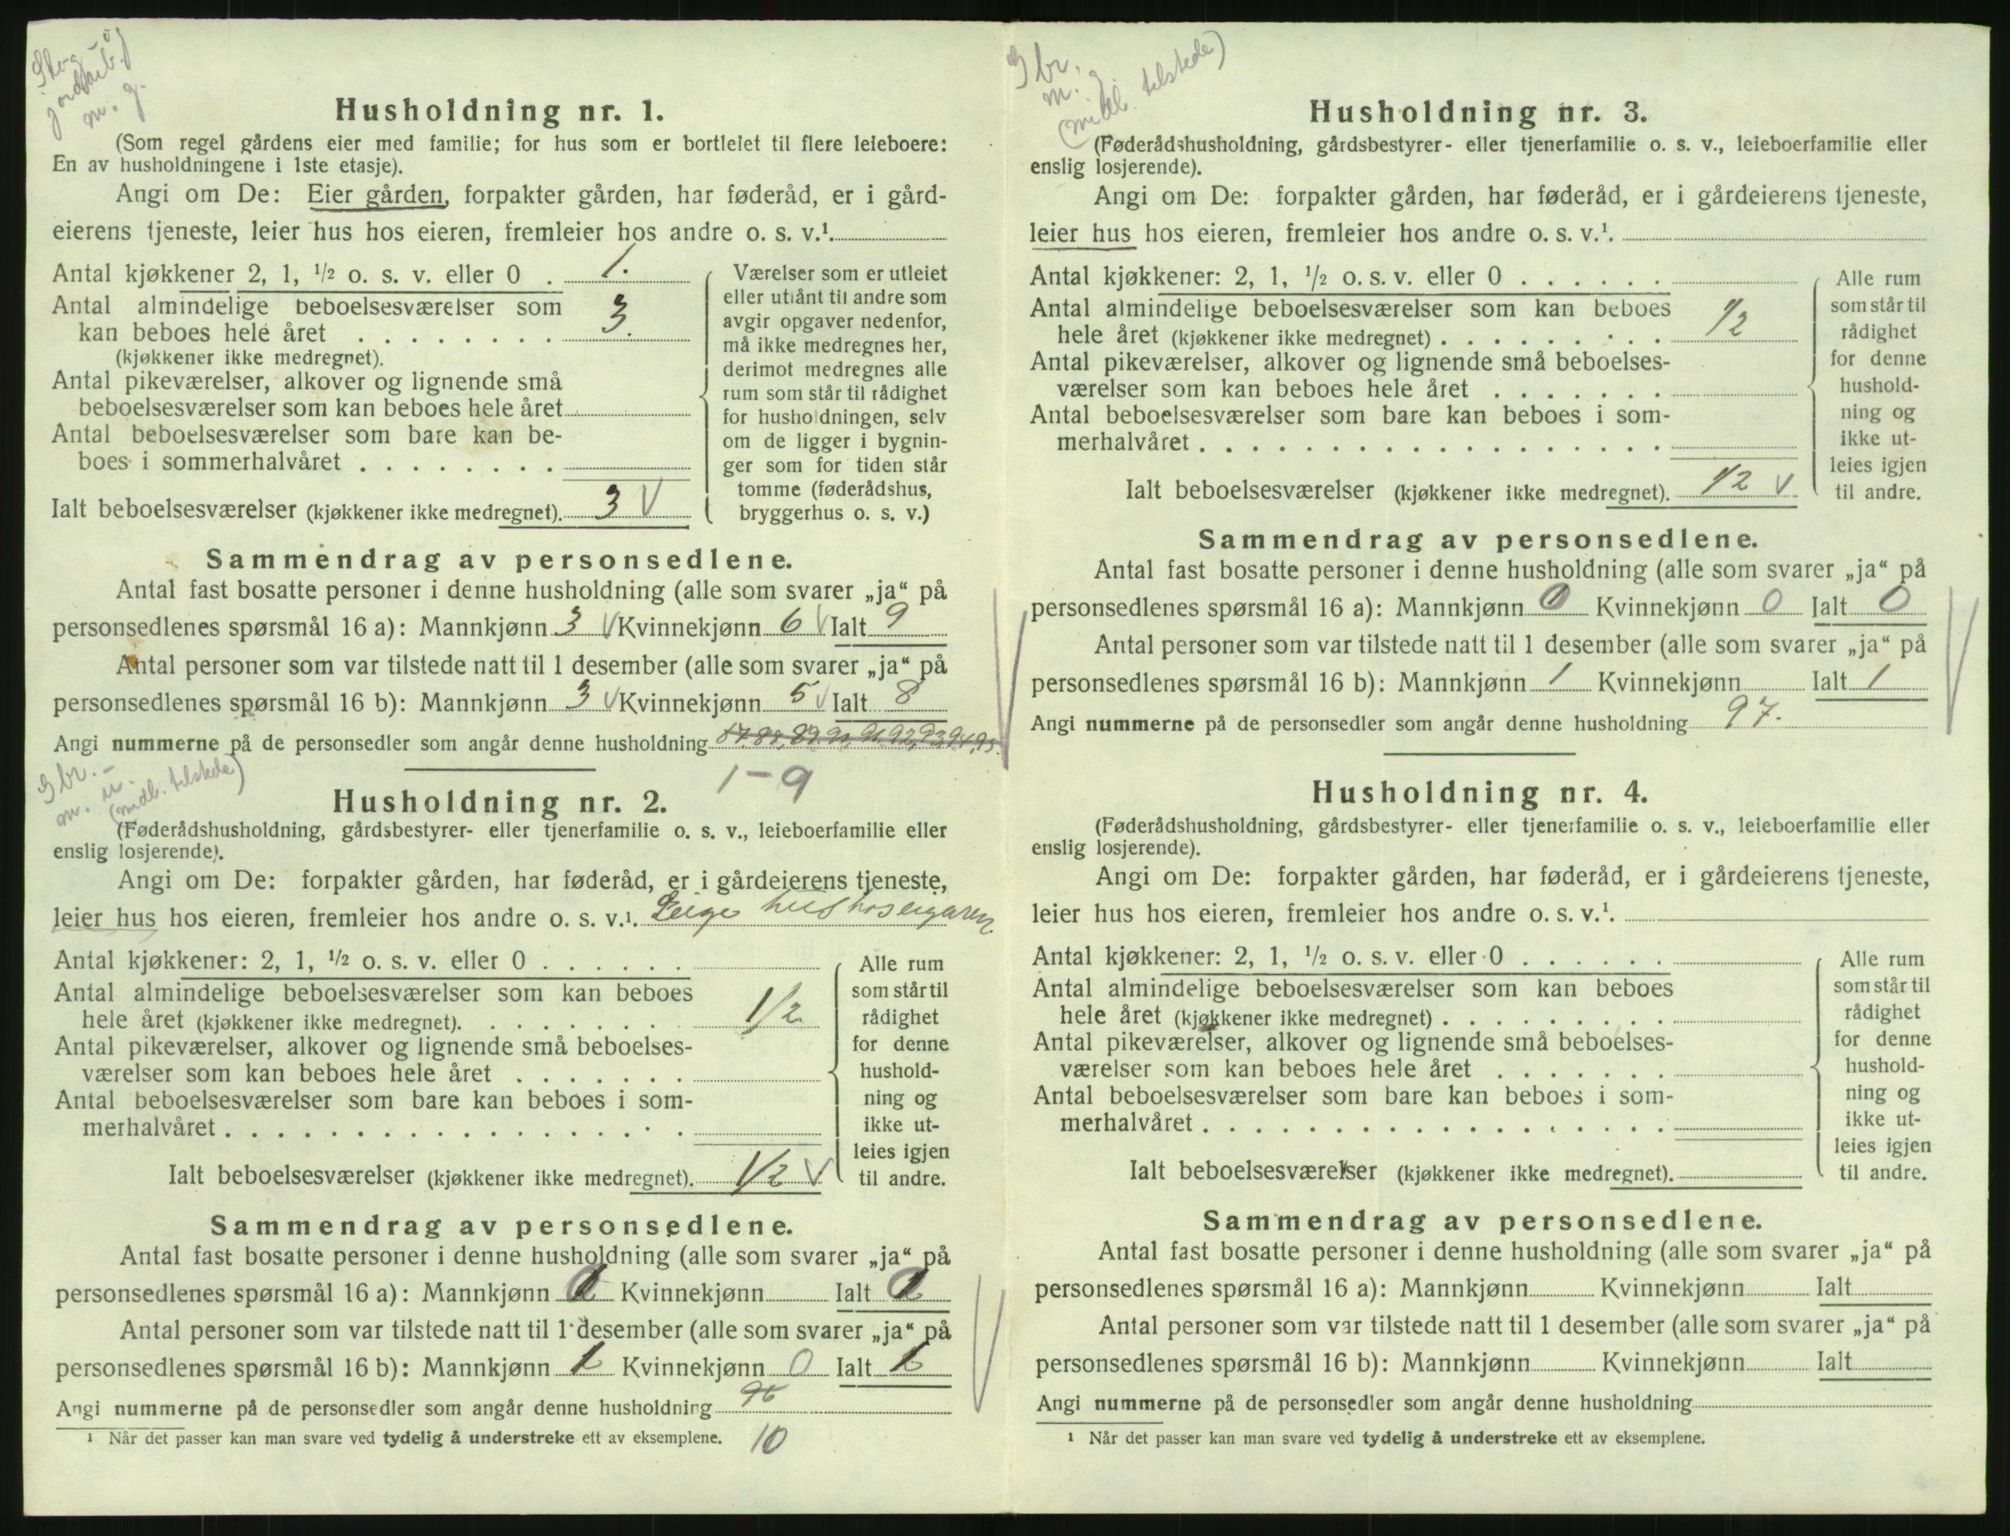 m. g.
Husholdning nr. 1.
(Som regel gårdens eier med familie; for hus som er bortleiet til flere leieboere:
En av husholdningene i 1ste etasje).
Angi om De: Eier gården, forpakter gården, har føderåd, er i gård-
eierens tjeneste, leier hus hos eieren, fremleier hos andre o. s. v.¹.
Antal kjøkkener 2, 1, ½ o. s. v. eller 0 . 1.
Antal almindelige beboelsesværelser som
kan beboes hele året . . . . . . . . 3.
(kjøkkener ikke medregnet).
Antal pikeværelser, alkover og lignende små
beboelsesværelser som kan beboes hele året
Antal beboelsesværelser som bare kan be-
boes i sommerhalvåret . . . . . . . .
Ialt beboelsesværelser (kjøkkener ikke medregnet). 3 V
Værelser som er utleiet
eller utlånt til andre som
avgir opgaver nedenfor,
må ikke medregnes her,
derimot medregnes alle
rum som står til rådighet
for husholdningen, selv
om de ligger i bygnin-
ger som for tiden står
tomme (føderådshus,
bryggerhus o. s. v.)
Sammendrag av personsedlene.
Antal fast bosatte personer i denne husholdning (alle som svarer „ja“ på
personsedlenes spørsmål 16 a): Mannkjønn 3 V Kvinnekjønn 6 V Ialt 9
Antal personer som var tilstede natt til 1 desember (alle som svarer „ja“ på
personsedlenes spørsmål 16 b): Mannkjønn 3 V Kvinnekjønn 5 V Ialt 8
Angi nummerne på de personsedler som angår denne husholdning 87, 88, 89, 90, 91, 92, 93, 94, 95.
1 - 9
(midl. tilstede)
Husholdning nr. 2.
(Føderådshusholdning, gårdsbestyrer- eller tjenerfamilie o. s. v., leieboerfamilie eller
enslig losjerende).
Angi om De: forpakter gården, har føderåd, er i gårdeierens tjeneste,
leier hus hos eieren, fremleier hos andre o. s. v.¹. Leige hus hos eigaren.
Antal kjøkkener: 2, 1, ½ o. s. v. eller 0 . . . . . .
Antal almindelige beboelsesværelser som kan beboes
hele året (kjøkkener ikke medregnet). . . . . . . . . 1/2
Antal pikeværelser, alkover og lignende små beboelses-
værelser som kan beboes hele året . . . . . . .
Antal beboelsesværelser som bare kan beboes i som-
merhalvåret . . . . . . . . . . . . . . . . .
Ialt beboelsesværelser (kjøkkener ikke medregnet). 1/2 V
Alle rum
som står til
rådighet
for denne
hushold-
ning og
ikke ut-
leies igjen
til andre.
Sammendrag av personsedlene.
Antal fast bosatte personer i denne husholdning (alle som svarer „ja“ på
personsedlenes spørsmål 16 a): Mannkjønn 0 Kvinnekjønn Ialt 0
Antal personer som var tilstede natt til 1 desember (alle som svarer „ja“ på
personsedlenes spørsmål 16 b): Mannkjønn 1 Kvinnekjønn 0 Ialt 1
Angi nummerne på de personsedler som angår denne husholdning 96
¹ Når det passer kan man svare ved tydelig å understreke ett av eksemplene. 10
(midl. tilstede)
Husholdning nr. 3.
(Føderådshusholdning, gårdsbestyrer- eller tjenerfamilie o. s. v., leieboerfamilie eller
enslig losjerende).
Angi om De: forpakter gården, har føderåd, er i gårdeierens tjeneste,
leier hus hos eieren, fremleier hos andre o. s. v.¹.
Antal kjøkkener: 2, 1, ½ o. s. v. eller 0 . . . . . .
Antal almindelige beboelsesværelser som kan beboes
hele året (kjøkkener ikke medregnet) . . . . . . . . . 1/2
Antal pikeværelser, alkover og lignende små beboelses-
værelser som kan beboes hele året . . . . . . .
Antal beboelsesværelser som bare kan beboes i som-
merhalvåret . . . . . . . . . . . . . . . . .
Ialt beboelsesværelser (kjøkkener ikke medregnet). 1/2 V
Alle rum
som står til
rådighet
for denne
hushold-
ning og
ikke ut-
leies igjen
til andre.
Sammendrag av personsedlene.
Antal fast bosatte personer i denne husholdning (alle som svarer „ja“ på
personsedlenes spørsmål 16 a): Mannkjønn 0 Kvinnekjønn 0 Ialt 0
Antal personer som var tilstede natt til 1 desember (alle som svarer „ja“ på
personsedlenes spørsmål 16 b): Mannkjønn 1 Kvinnekjønn Ialt 1
Angi nummerne på de personsedler som angår denne husholdning 97.
Husholdning nr. 4.
(Føderådshusholdning, gårdsbestyrer- eller tjenerfamilie o. s. v., leieboerfamilie eller
enslig losjerende).
Angi om De: forpakter gården, har føderåd, er i gårdeierens tjeneste,
leier hus hos eieren, fremleier hos andre o. s. v.¹.
Antal kjøkkener: 2, 1, ½ o. s. v. eller 0 . . . . . .
Antal almindelige beboelsesværelser som kan beboes
hele året (kjøkkener ikke medregnet) . . . . . . . . .
Antal pikeværelser, alkover og lignende små beboelses-
værelser som kan beboes hele året . . . . . . .
Antal beboelsesværelser som bare kan beboes i som-
merhalvåret . . . . . . . . . . . . . . . . .
Ialt beboelsesværelser (kjøkkener ikke medregnet).
Alle rum
som står til
rådighet
for denne
hushold-
ning og
ikke ut-
leies igjen
til andre.
Sammendrag av personsedlene.
Antal fast bosatte personer i denne husholdning (alle som svarer „ja“ på
personsedlenes spørsmål 16 a): Mannkjønn Kvinnekjønn Ialt
Antal personer som var tilstede natt til 1 desember (alle som svarer „ja“ på
personsedlenes spørsmål 16 b): Mannkjønn Kvinnekjønn Ialt
Angi nummerne på de personsedler som angår denne husholdning
¹ Når det passer kan man svare ved tydelig å understreke ett av eksemplene.